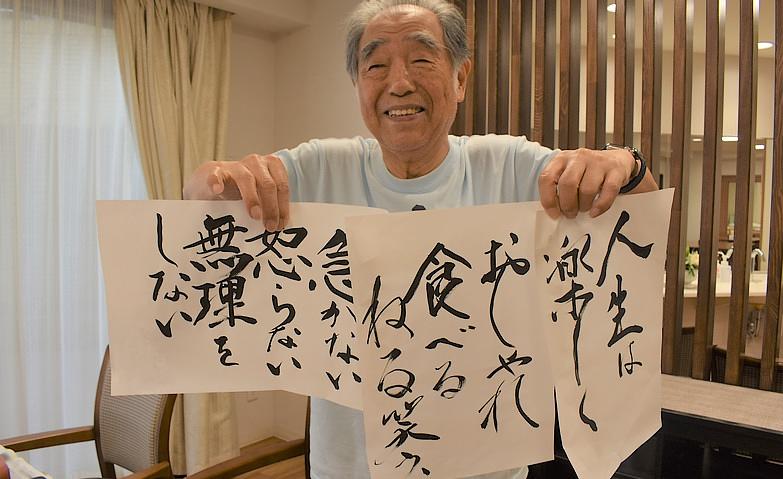 人生は
楽しく
おしゃれ
食べる
ねる笑う
急かない
怒らない
無理を
しない